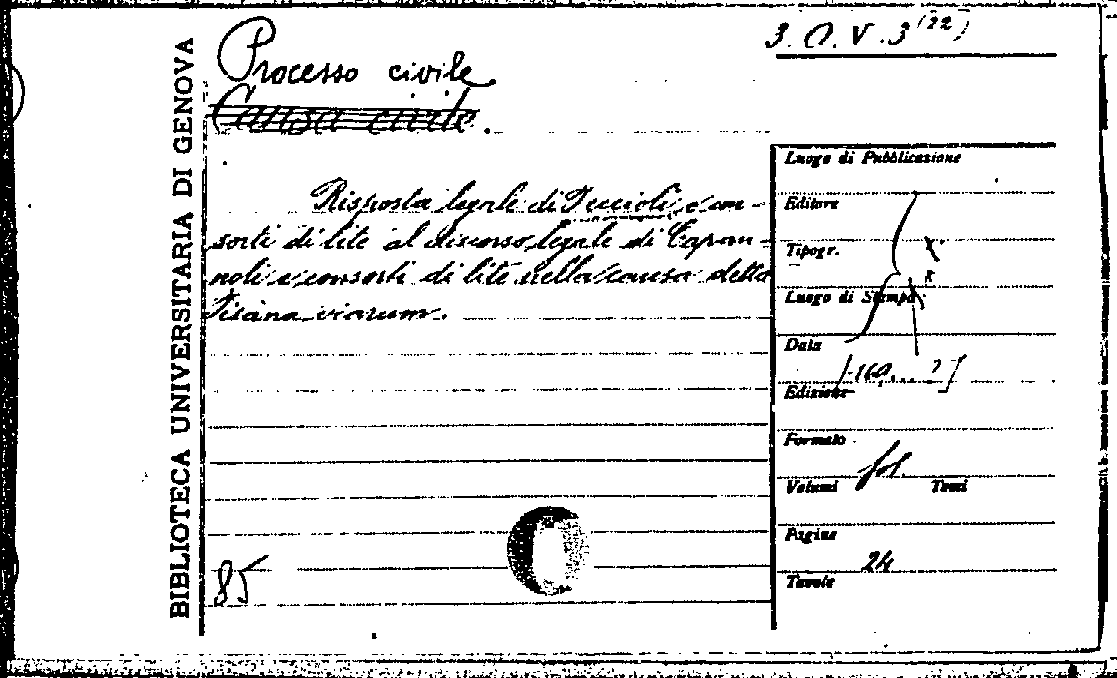 3. O. V. 3 (22)
BIBLIOTECA UNIVERSITARIA DI GENOVA
Processo civile
Causa civile.
Risposta legale di Tuccioli e con-
sorti di lite al discorso legale di Capan-
noli e consorti di lite nella causa detta
Pisana viarum.
85
Luogo di Pubblicazione
Editore
Tipogr.
Luogo di Stampa
Data
[160... ?]
Edizione
Formato
Volumi fol. Tomi
Pagine
24
Tavole